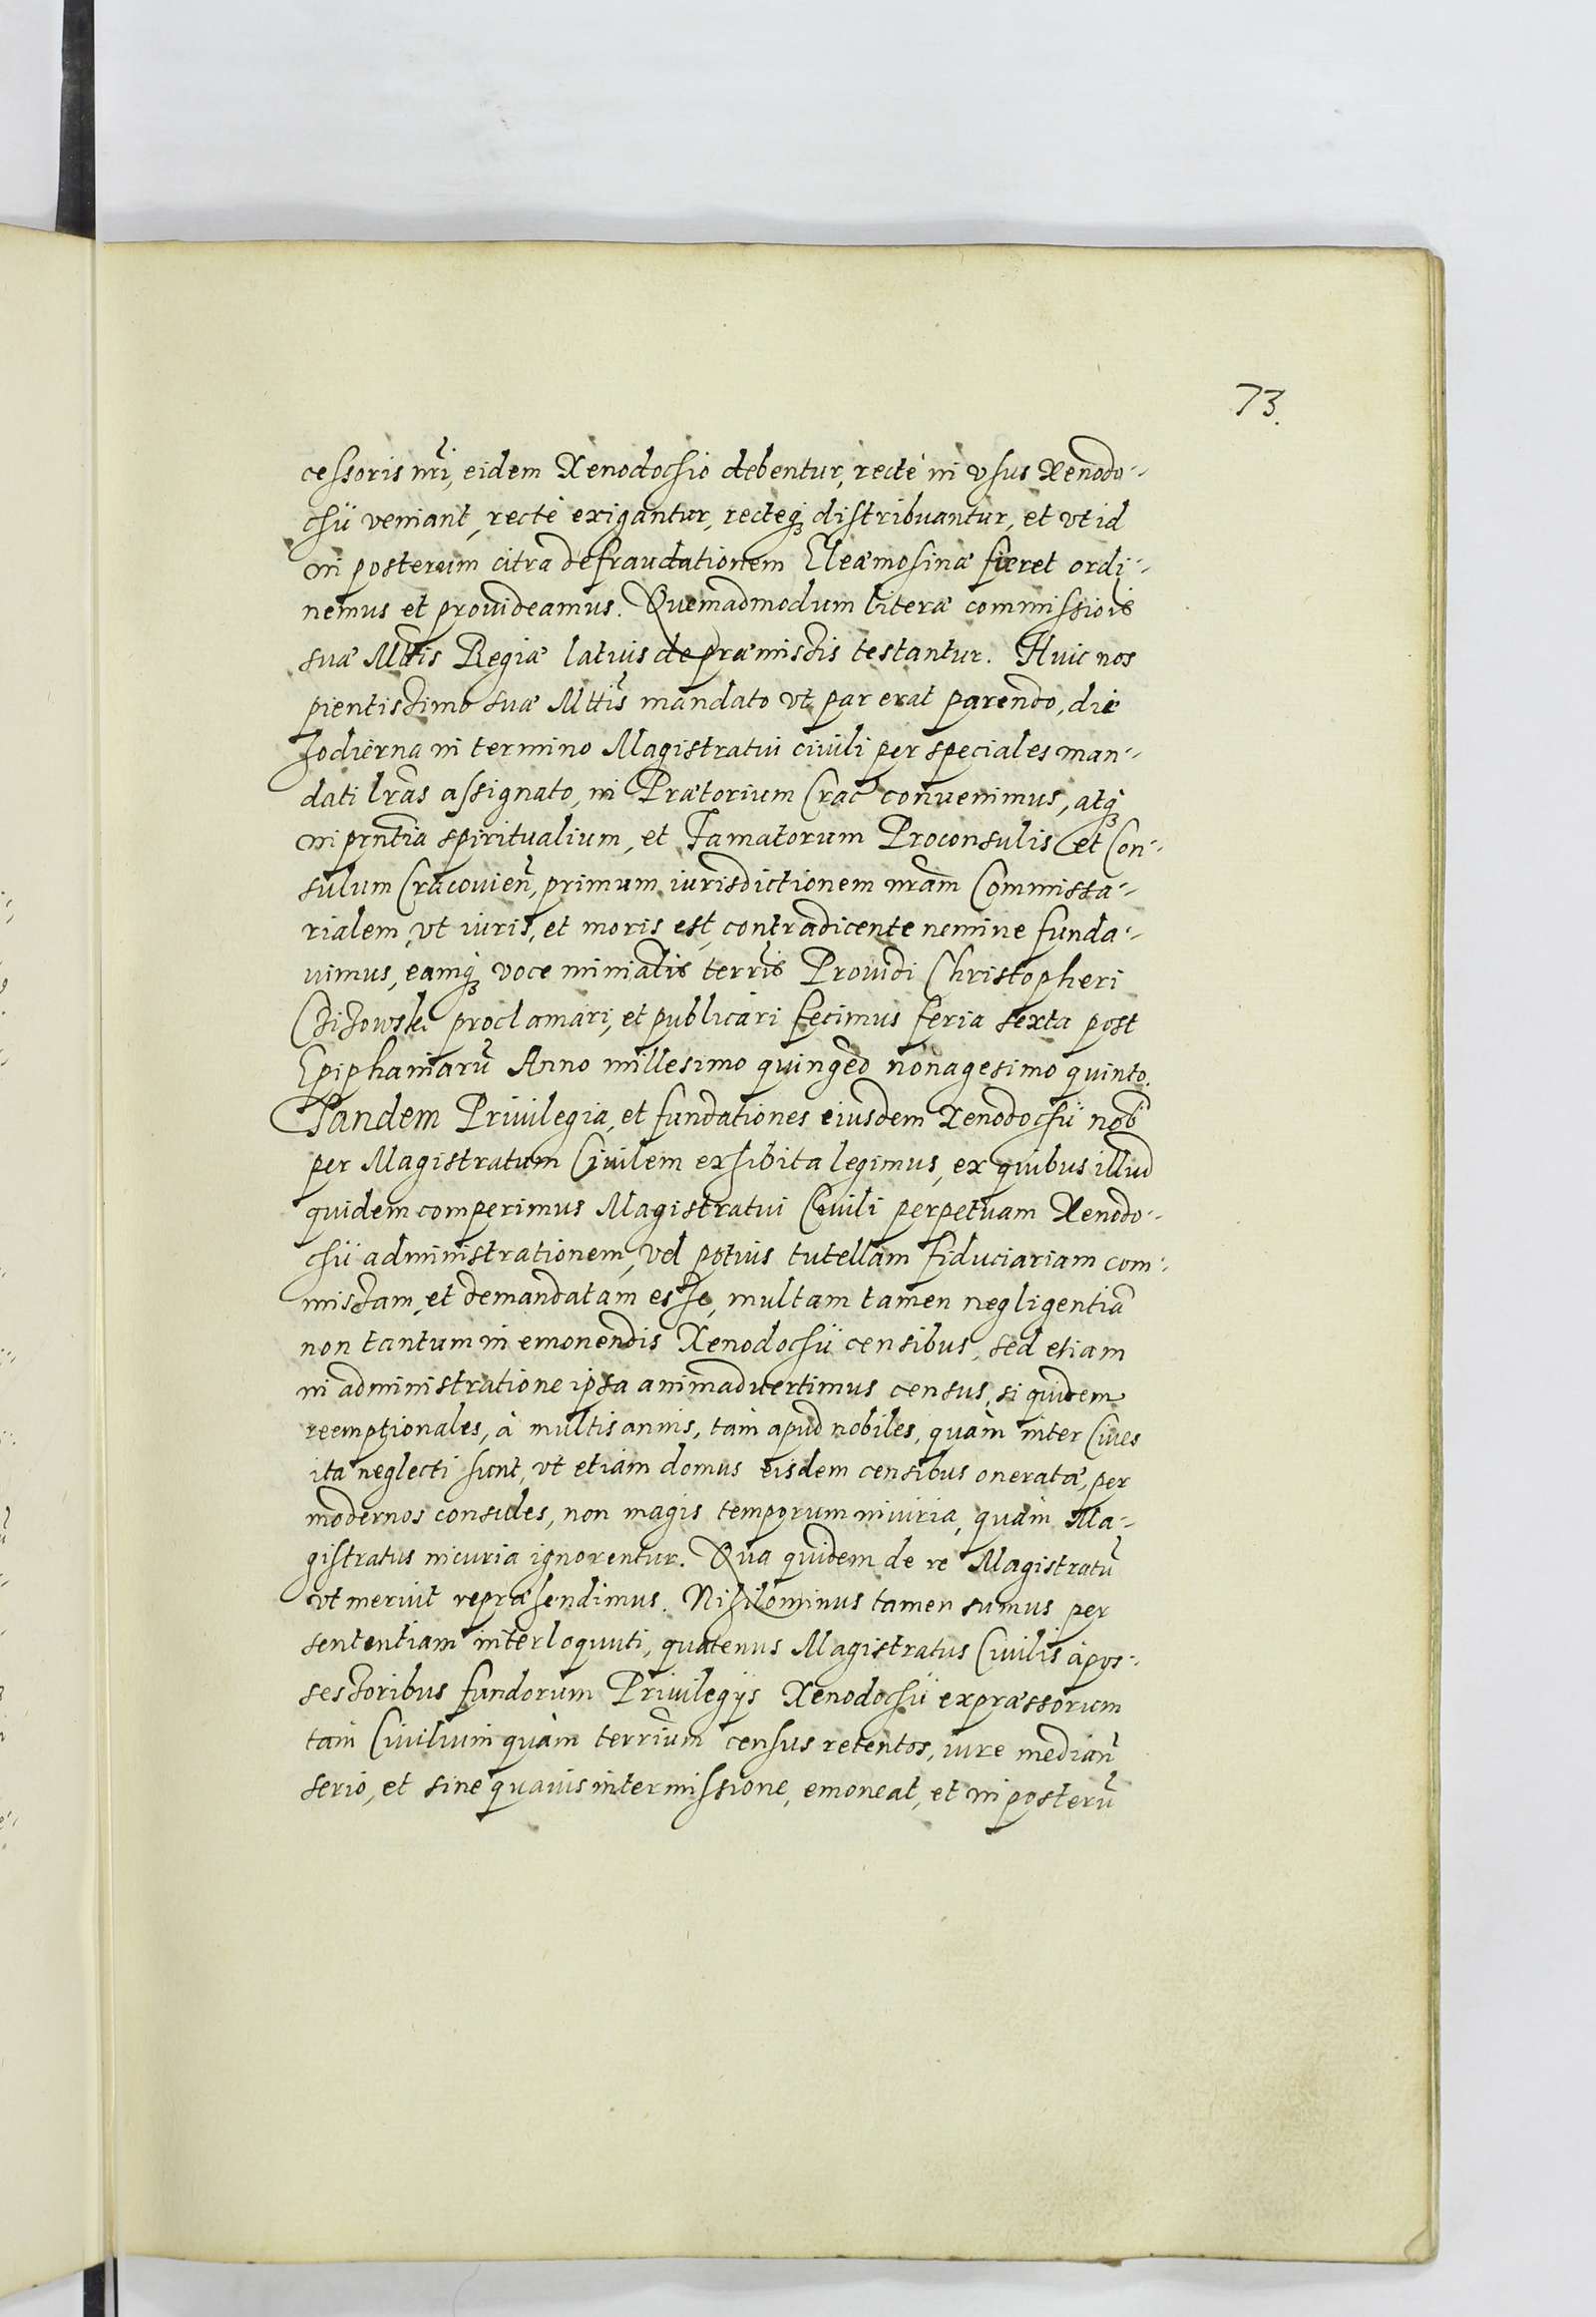 73.
cessoris nri, eidem Xenodochio debentur, recté in vsus Xenodo-
chii veniant, recté exigantur, recteq; distribuantur, et vt id
in posterum citra defraudationem Eleæmosinæ fieret ordi-
nemus et prouideamus. Quemadmodum literæ commissiois
suæ Mttis Regiæ latius de præmissis testantur. Huic nos
pientissimo suæ Mttis mandato vt par erat parendo, die
hodierna in termino Magistratui ciuili per speciales man-
dati lras assignato, in Prætorium Crac conuenimus, atq;
in prntia spiritualium, et Famatorum Proconsulis et Con-
sulum Cracouien, primum iurisdictionem nram Commissa-
rialem, vt iuris, et moris est, contradicente nemine funda-
uimus, eamq; voce minialis terris Prouidi Christopheri
proclamari, et publicari fecimus feria sexta post
Epiphaniaru Anno millesimo quingeo nonagesimo quinto.
Tandem Priuilegia, et fundationes eiusdem Xenodochii nob
per Magistratum Ciuilem exhibita legimus, ex quibus illud
quidem comperimus Magistratui Ciuili perpetuam Xenodo-
chii administrationem, vel potius tutellam fiduciariam com-
missam, et demandatam esse, multam tamen negligentia
non tantum in emonendis Xenodochii censibus, sed etiam
in administratione ipsa animaduertimus census, si quidem
reemptionales, à multis annis, tam apud nobiles, quàm inter Ciues
ita neglecti sunt, vt etiam domus eisdem censibus oneratæ, per
modernos consules, non magis temporum iniuria, quàm Ma-
gistratus incuria ignorentur. Qua quidem de re Magistratu
vt meruit repræhendimus. Nihilominus tamen sumus per
sententiam interloquuti, quatenus Magistratus Ciuilis à pos-
sessoribus fundorum Priuilegijs Xenodochii expræssorum
tam Ciuilium quàm terrium census retentos, iure median
serio, et sine quauis intermissione, emoneat, et in posteru